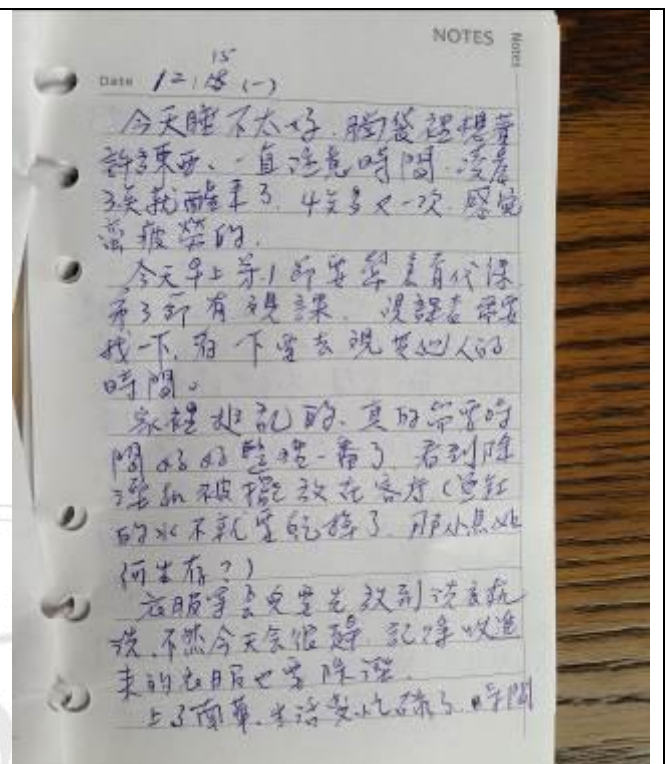 NOTES
Notes
Date 12/15 (一)
今天睡不太好.腦袋裡想著
許多東西、一直注意時間.凌晨
3點就醒來了.4點多又一次.感覺
蠻疲勞的.
今天早上第1節要幫素有代課
第3節有觀課.觀課者需要
找一下.有下要去觀其他人的
時間。
家裡挺亂的、真的需要時
間好好整理一番了.看到除
濕機被擺放在客厅(魚缸
的水不就要乾掉了.那小魚如
何生存?)
衣服等会兒要先放到洗衣机
洗.不然今天会很趕.記得收進
來的衣服也要除濕.
上了國華.生活变忙碌了.時間